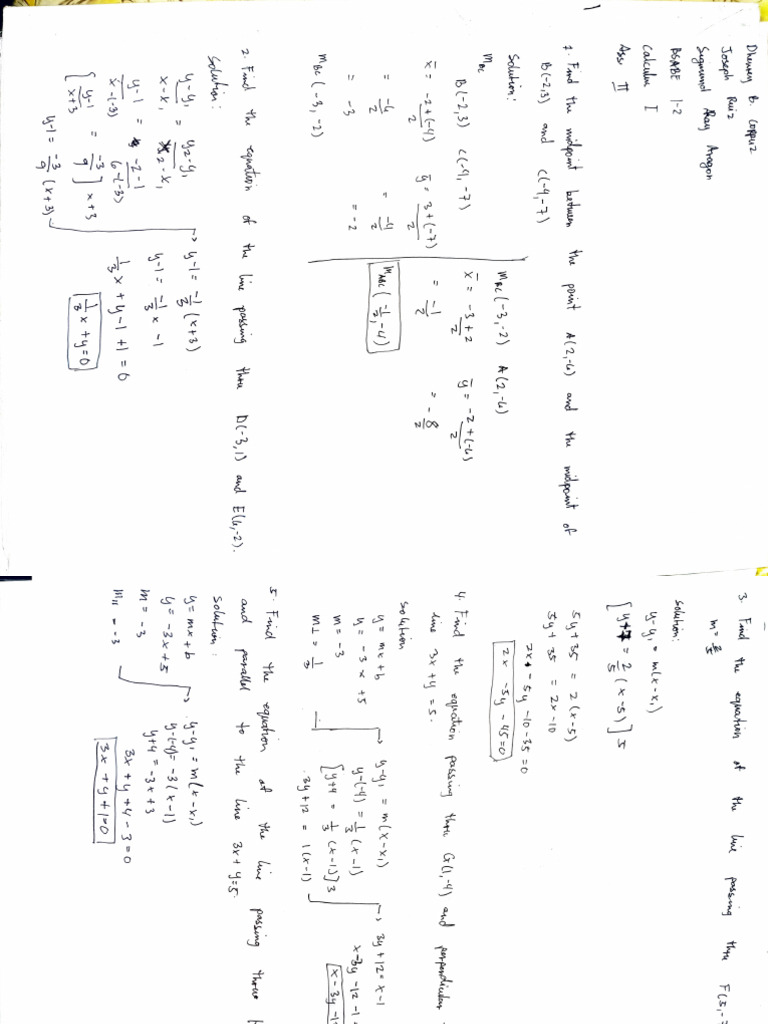 1
Dhenney B. Corpuz
Joseph Ruiz
Sigmund Ray Aragon
BSABE 1-2
Calculus I
Ass II
1. Find the midpoint between the point A(2,-6) and the midpoint of
B(-2,3) and C(-4,-7)
Solution:
M_BC
B(-2,3) C(-4,-7)
x̄ = -2+(-4)/2 ȳ = 3+(-7)/2
= -6/2 = -4/2
= -3 = -2
M_BC (-3,-2)
M_BC (-3,-2) A(2,-6)
x̄ = -3+2/2 ȳ = -2+(-6)/2
= -1/2 = -8/2
M_ABC (-1/2, -4)
2. Find the equation of the line passing thru D(-3,1) and E(6,-2).
Solution:
y-y₁/x-x₁ = y₂-y₁/x₂-x₁
y-1/x-(-3) = -2-1/6-(-3)
[y-1/x+3 = -3/9] x+3
y-1 = -3/9 (x+3)
y-1 = -1/3 (x+3)
y-1 = -1/3 x - 1
1/3 x + y - 1 + 1 = 0
1/3 x + y = 0
3. Find the equation of the line passing thru F(5,-
m = 2/5
Solution:
y-y₁ = m(x-x₁)
[y+7 = 2/5 (x-5)] 5
5y+35 = 2(x-5)
5y+35 = 2x-10
2x - 5y -10-35 = 0
2x - 5y - 45=0
4. Find the equation passing thru G(1,-4) and perpendicular
line 3x+y = 5.
Solution
y = mx+b
y = -3x+5
m = -3
m⊥ = 1/3
y-y₁ = m(x-x₁)
y-(-4) = 1/3 (x-1)
[y+4 = 1/3 (x-1)] 3
3y+12 = 1(x-1)
3y+12 = x-1
x-3y-12-1
x-3y-1
5. Find the equation of the line passing
and parallel to the line 3x+y=5.
Solution:
y = mx+b
y = -3x+5
m = -3
m∥ = -3
y-y₁ = m(x-x₁)
y-(-4) = -3(x-1)
y+4 = -3x+3
3x+y+4-3=0
3x+y+1=0